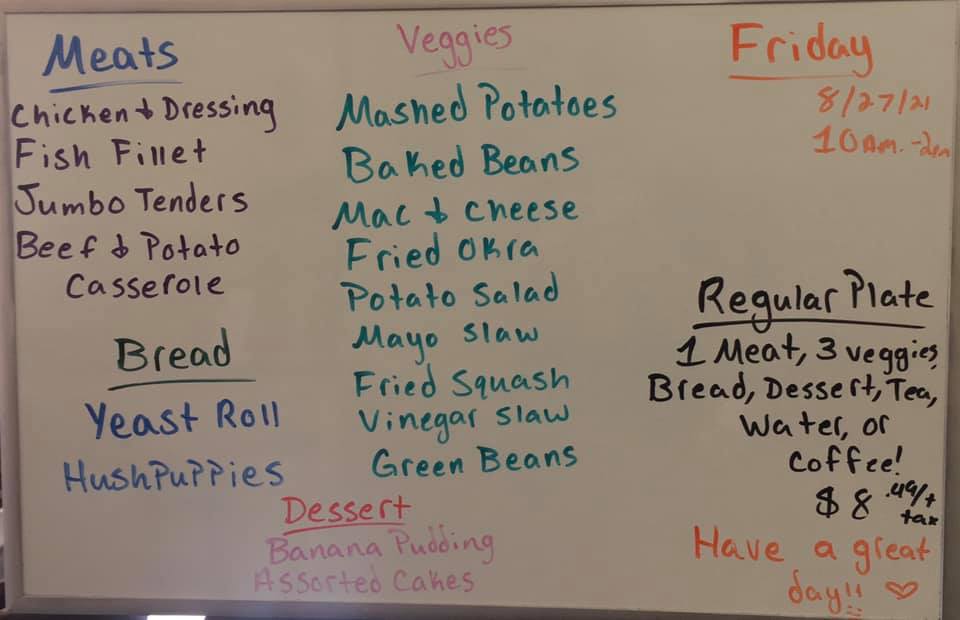 Meats
Chicken & Dressing
Fish Fillet
Jumbo Tenders
Beef & Potato
Casserole
Bread
Yeast Roll
HushPuPPies
Veggies
Mashed Potatoes
Baked Beans
Mac & cheese
Fried Okra
Potato Salad
Mayo Slaw
Fried Squash
Vinegar Slaw
Green Beans
Dessert
Banana Pudding
Assorted Cakes
Friday
8/27/21
10am.-2pm
Regular Plate
1 Meat, 3 veggies,
Bread, Dessert, Tea,
Water, or
Coffee!
$8.49/+
tax
Have a great
day!! ♡